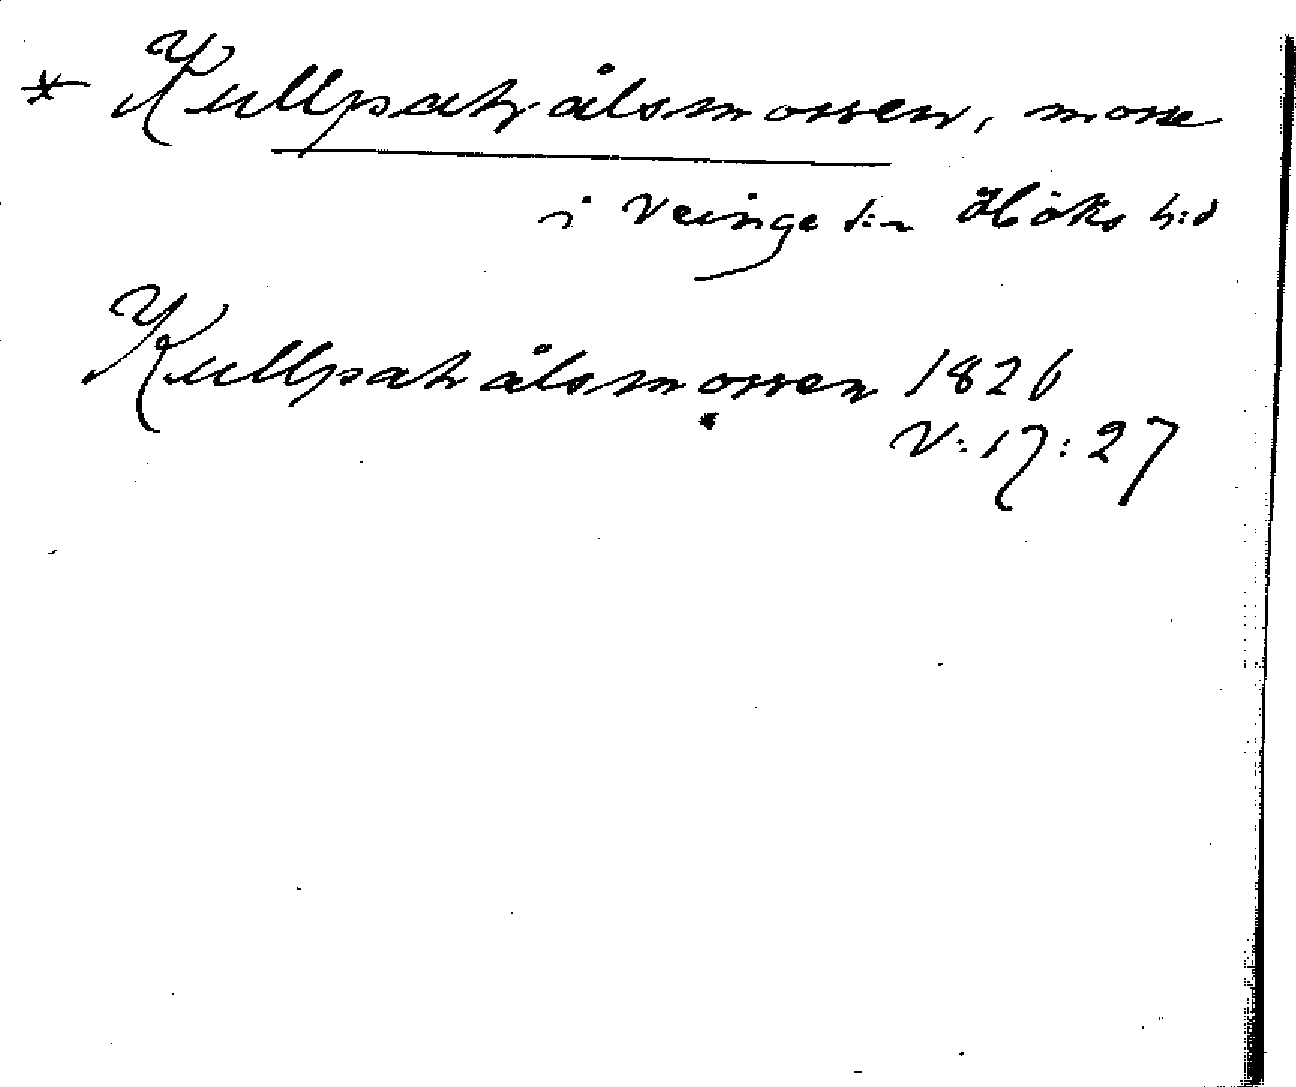 * Kullpahålsmossen, mosse
i Veinge s:n Höks h:d
Kullpahålsmossen 1826
V:17:27